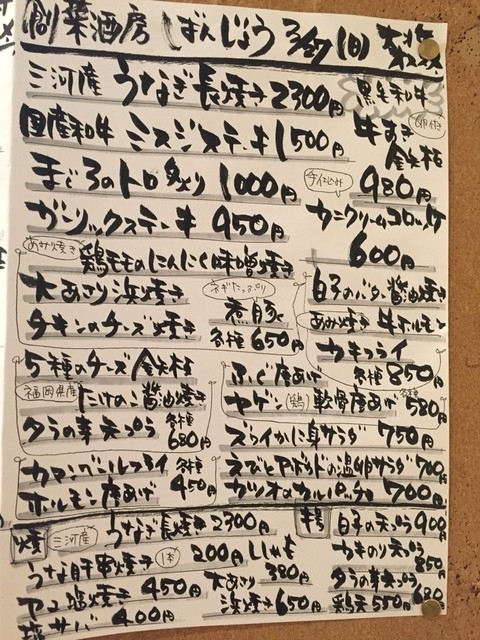 創菜酒房 ばんじょう 3/27(日)
三河産 うなぎ長焼き 2300円
国産和牛 ミスジステーキ 1500円
まぐろのトロ炙り 1000円
ガーリックステーキ 950円
黒毛和牛
牛すき
金矢板
980円
手仕込み
カニクリームコロッケ
600円
あみ焼き 鶏モモのにんにく味噌焼き
大あさり浜焼き
チキンのチーズ焼き
ネギたっぷり
煮豚
各種 650円
白子のバター醤油焼き
あみ焼き 牛ホルモン
カキフライ
各種 850円
5種のチーズ金矢板
福岡県産 たけのこ醤油焼き
タラの芽天ぷら 各種 680円
ふぐ唐あげ
ヤゲン(鶏)軟骨唐あげ 各種 580円
カマンベールフライ
ホルモン唐あげ
各種 450円
ズワイかに身サラダ 750円
えびとアボカドの温卵サラダ 700円
カツオのカルパッチョ 700円
焼
三河産 うなぎ長焼き 2300円
うなぎ肝串焼き 1本 200円
塩焼き 450円
塩サバ 400円
ししゃも
380円
大あさり
浜焼き 650円
白子の天ぷら 900円
カキのり天ぷら
850円
タラの芽天ぷら
680円
鶏天 550円